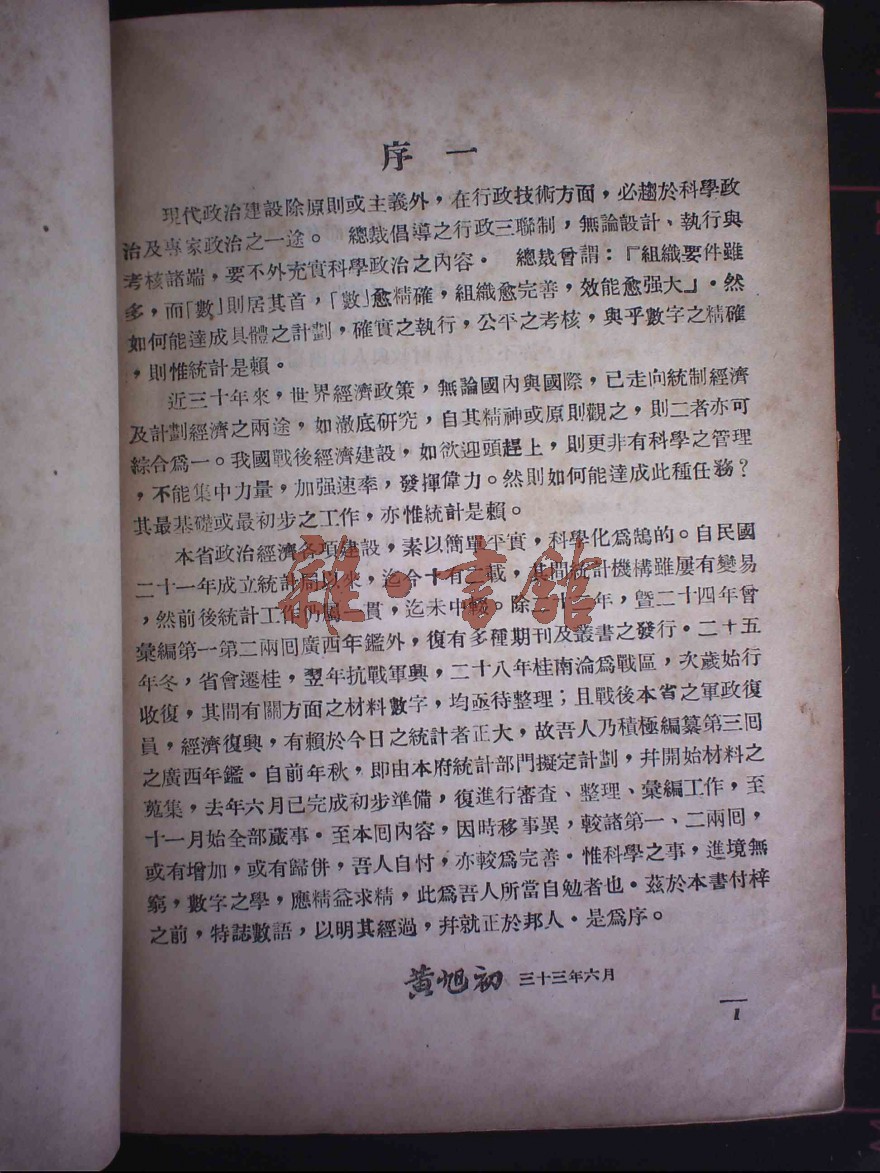 序一
現代政治建設除原則或主義外，在行政技術方面，必趨於科學政
治及專家政治之一途。　總裁倡導之行政三聯制，無論設計、執行與
考核諸端，要不外充實科學政治之內容。　總裁曾謂：『組織要件雖
多，而「數」則居其首，「數」愈精確，組織愈完善，效能愈强大』。然
如何能達成具體之計劃，確實之執行，公平之考核，與乎數字之精確
，則惟統計是賴。
近三十年來，世界經濟政策，無論國內與國際，已走向統制經濟
及計劃經濟之兩途，如澈底研究，自其精神或原則觀之，則二者亦可
綜合爲一。我國戰後經濟建設，如欲迎頭趕上，則更非有科學之管理
，不能集中力量，加强速率，發揮偉力。然則如何能達成此種任務？
其最基礎或最初步之工作，亦惟統計是賴。
本省政治經濟各項建設，素以簡單平實，科學化爲鵠的。自民國
二十一年成立統計局以來，迄今十有二載，其間統計機構雖屢有變易
，然前後統計工作仍屬一貫，迄未中輟。除二十二年，曁二十四年曾
彙編第一第二兩囘廣西年鑑外，復有多種期刊及叢書之發行。二十五
年冬，省會遷桂，翌年抗戰軍興，二十八年桂南淪爲戰區，次歲始行
收復，其間有關方面之材料數字，均亟待整理；且戰後本省之軍政復
員，經濟復興，有賴於今日之統計者正大，故吾人乃積極編纂第三囘
之廣西年鑑。自前年秋，即由本府統計部門擬定計劃，幷開始材料之
蒐集，去年六月已完成初步準備，復進行審查、整理、彙編工作，至
十一月始全部蕆事。至本囘內容，因時移事異，較諸第一、二兩囘，
或有增加，或有歸併，吾人自忖，亦較爲完善。惟科學之事，進境無
窮，數字之學，應精益求精，此爲吾人所當自勉者也。茲於本書付梓
之前，特誌數語，以明其經過，幷就正於邦人。是爲序。
黃旭初 三十三年六月
1
雜·書館